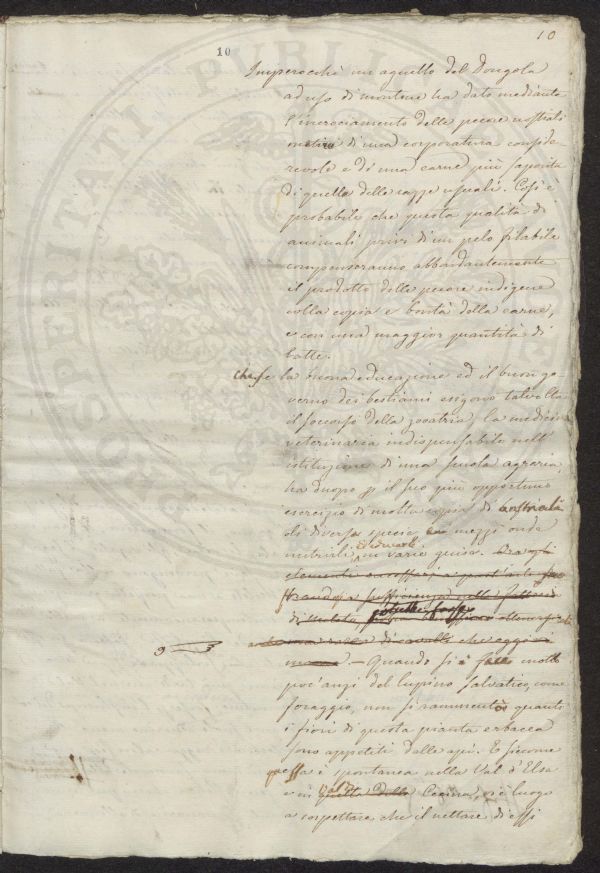 10
10
Imperocchè un agnello del Dongola
ad uso di montone ha dato mediante
l'incrociamento delle pecore nostrali
meticci d'una corporatura conside-
revole e di una carne più saporita
di quella delle razze usuali. Così è
probabile che questa qualità di
animali privi d'un pelo filabile
compenseranno abbondantemente
il prodotto delle pecore indigene
colla copia e bontà della carne,
e con una maggior quantità di
latte.
Che se la buona educazione ed il buon go-
verno dei bestiami esigono talvolta
il soccorso della zooatria, la medicina
veterinaria indispensabile nell'
istituzione di una scuola agraria
ha duopo p il suo più opportuno
esercizio di molta copia di
di diverse specie mezzi onde
nutrirli in varie guise.
elementi
a sufficienza nelle fattorie
di
una razza di cavalli che oggi
— Quando si è molto
poc'anzi del lupino salvatico, come
foraggio, non si rammentò quanto
i fiori di questa pianta erbacea
sono appetiti dalle api. E siccome
questa è spontanea nella Val d'Elsa
e in quella della Cecina, vi è luogo
a sospettare che il nettare di essi